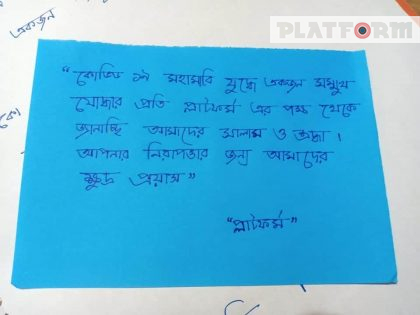 PLATFORM
একজন
"কোভিড ১৯ মহামারি যুদ্ধে একজন সম্মুখ
যোদ্ধার প্রতি প্লাটফর্ম এর পক্ষ থেকে
জানাচ্ছি আমাদের সালাম ও শ্রদ্ধা।
আপনার নিরাপত্তার জন্য আমাদের
ক্ষুদ্র প্রয়াস"
"প্লাটফর্ম"